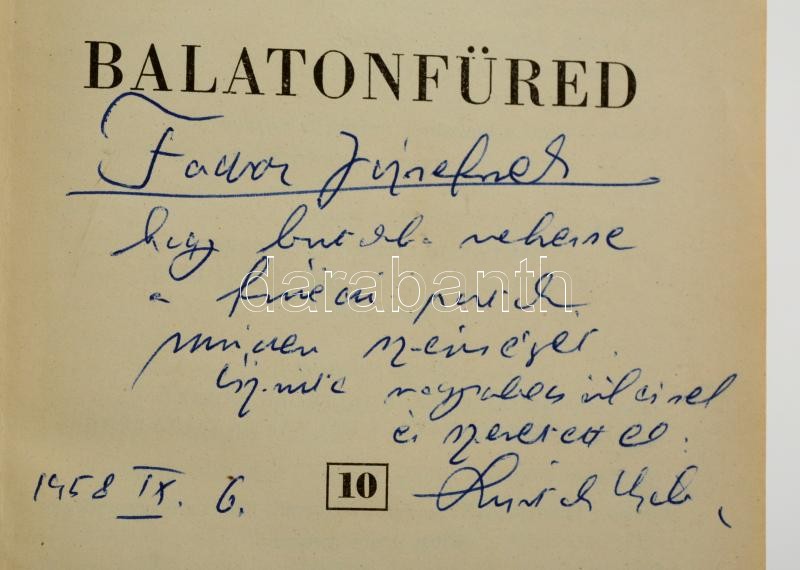 BALATONFÜRED
Fodor Józsefnek
hogy birtokba vehesse
a füredi partok
minden szépségét.
őszinte nagyrabecsüléssel
és szeretettel:
1958 IX. 6.
10
darabanth